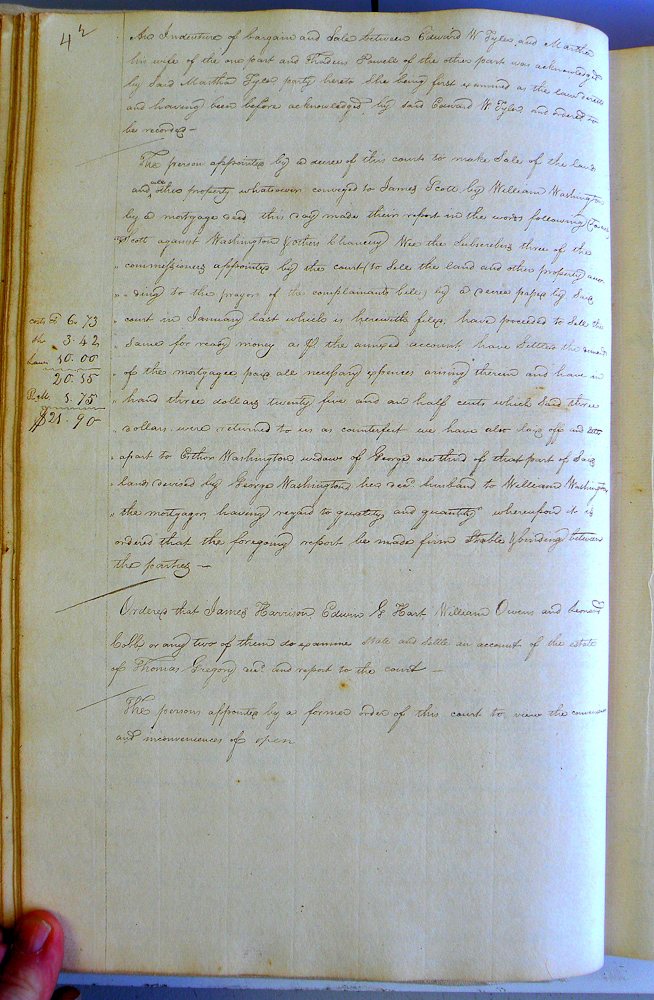 42
An Indenture of bargain and Sale between Edward W Tyler and Martha
his wife of the one part and Thaders Powell of the other part was acknowledged
by Said Martha Tyler party hereto She being first examined as the law directs
and having been before acknowledged by said Edward W Tyler and ordered to
be recorded —
The person appointed by a decree of this court to make Sale of the land
and also other property whatsoever conveyed to James Scott by William Washington
by a mortgage deed this day made their report in the words following (towit)
Scott against Washington & others Chancery Wee the Subscribers three of the
" commissioners appointed by the court to Sell the land and other property accor
" ding to the prayers of the complainants bill, by a decree papers by Said
" court in January last which is herewith filed, have proceeded to Sell the
" Same for ready money as pr the annexed account, have Settled the
" of the mortgagee paid all necessary expences arising therein and have in
" hand three dollars twenty five and an half cents which Said three
" dollars were returned to us as counterfeit we have also laid off and
" apart to Esther Washington widow of George one third of that part of Said
" land devised by George Washington her decd. husband to William Washington
" the mortgagor, having regard to quality and quantity" whereupon it is
ordered that the foregoing report be made firm Stable & binding between
the parties —
costs 6.73
3.42
10.00
20.15
1.75
$21.90
Ordered that James Harrison, Edwin G Hart William Owens and
Cobb or any two of them do examine State and Settle an account of the estate
of Thomas Gregory decd. and report to the court —
The persons appointed by a former order of this court to view the
and inconveniences of open